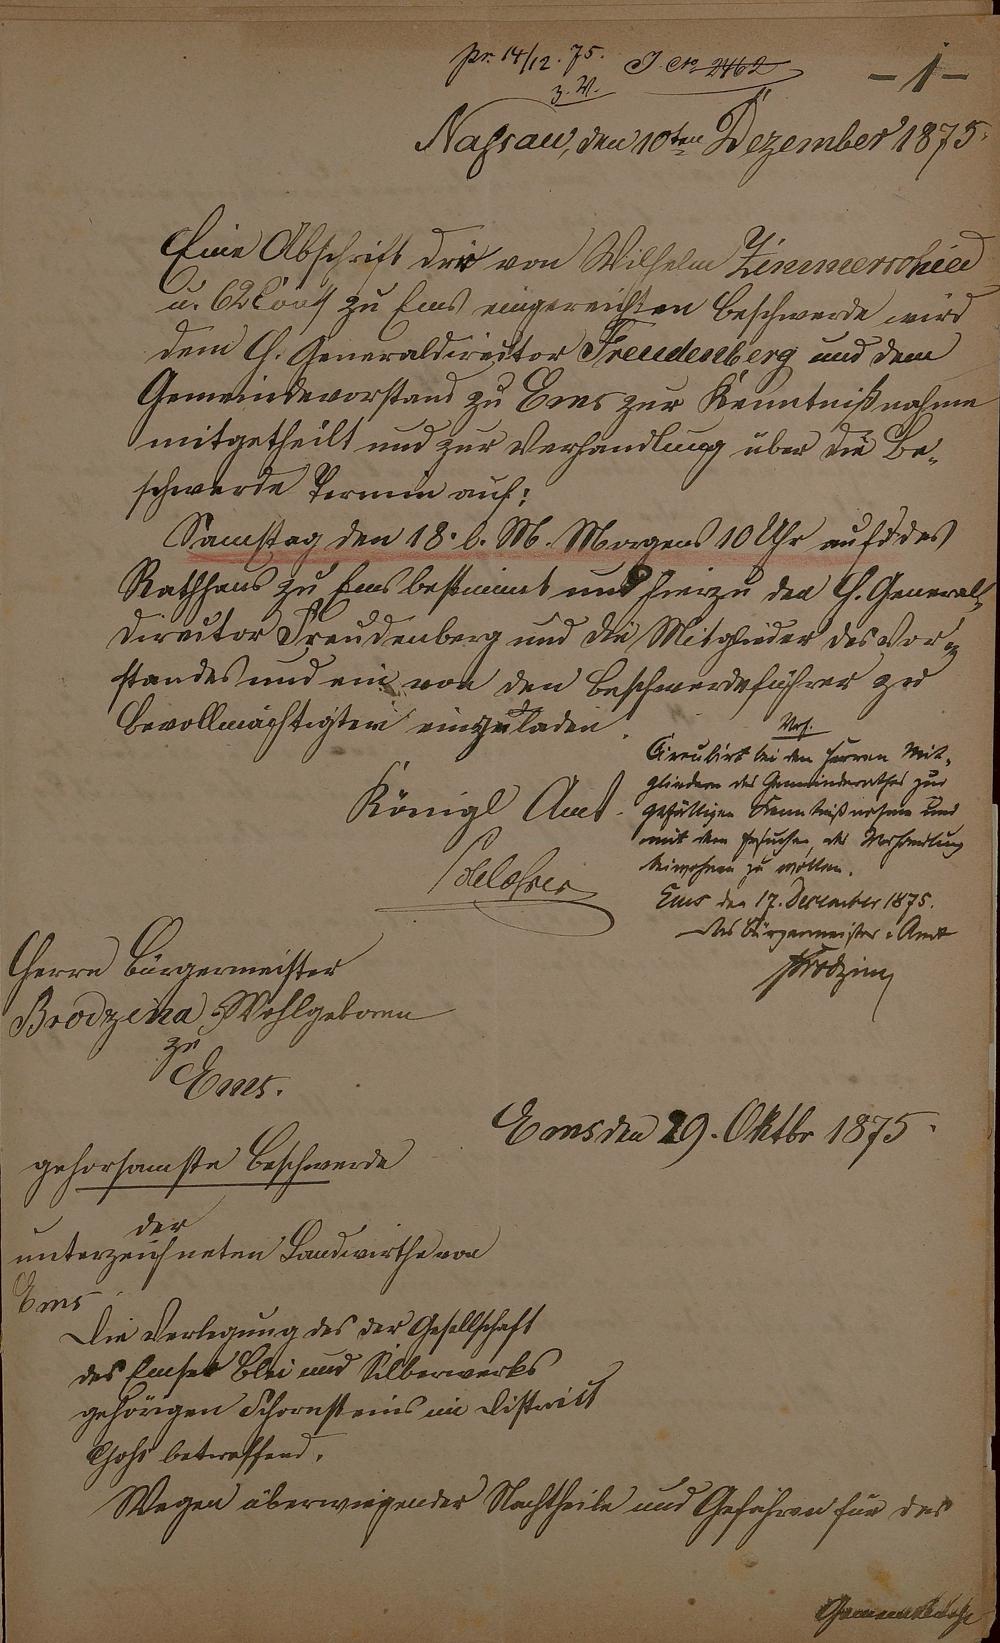 pr. 14/12. 75. J. No 2462
z. V.
- 1 -
Nassau, den 10ten Dezember 1875.
Eine Abschrift der von Wilhelm Zimmerschied
u. 62 Cons zu Ems eingereichten Beschwerde wird
dem H. Generaldirector Freudenberg und dem
Gemeindevorstand zu Ems zur Kenntnißnahme
mitgetheilt und zur Verhandlung über die Be-
schwerde Termin auf:
Samstag den 18. l. M. Morgens 10 Uhr auf das
Rathhaus zu Ems bestimmt und hierzu den H. General-
director Freudenberg und die Mitglieder des Vor-
standes und ein von den Beschwerdeführer zu
bevollmächtigten einzuladen.
Königl Amt.
Herrn Bürgermeister
Brodzina Wohlgeboren
zu
Ems.
Vrf.
Circulirt bei den Herren Mit-
gliedern des Gemeinderathes zur
gefälligen Kenntnißnahme und
mit dem Ersuchen, der Verhandlung
beiwohnen zu wollen.
Ems den 17. December 1875.
Das Bürgermeister-Amt
Brodzina
Ems den 29. Oktbr 1875.
gehorsamste Beschwerde
der
unterzeichneten Landwirthe von
Ems.
Die Verlegung des der Gesellschaft
des Emser Blei und Silberwerks
gehörigen Schornsteins im District
betreffend.
Wegen überwiegender Nachtheile und Gefahren für das